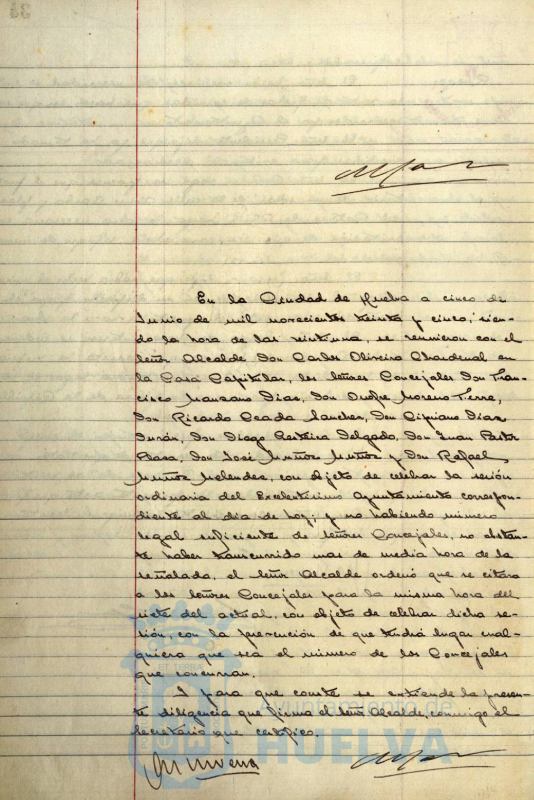 34
En la Ciudad de Huelva a cinco de
Junio de mil novecientos treinta y cinco, sien-
do la hora de las veintiuna, se reunieron con el
Señor Alcalde Don Carlos Oliveira Chardenal en
la Casa Capitular, los Señores Concejales Don Fran-
cisco Manzano Días, Don Onofre Moreno Terre,
Don Ricardo Ceada Sanchez, Don Cipriano Dias
Durán, Don Diego Delgado, Don Juan Pastor
Don José Muñoz Muñoz y Don Rafael
Muñoz Melendez, con objeto de celebrar la sesión
ordinaria del Excelentísimo Ayuntamiento correspon-
diente al dia de hoy; y no habiendo número
legal suficiente de Señores Concejales, no obstan-
te haber transcurrido mas de media hora de la
señalada, el Señor Alcalde ordenó que se citara
a los Señores Concejales para la misma hora del
siete del actual, con objeto de celebrar dicha se-
sión, con la prevención de que tendrá lugar cual-
quiera que sea el número de los Concejales
que concurran.
I para que conste se extiende la presen-
te diligencia que firma el Señor Alcalde, conmigo el
Secretario que certifico.
Ayuntamiento de
HUELVA